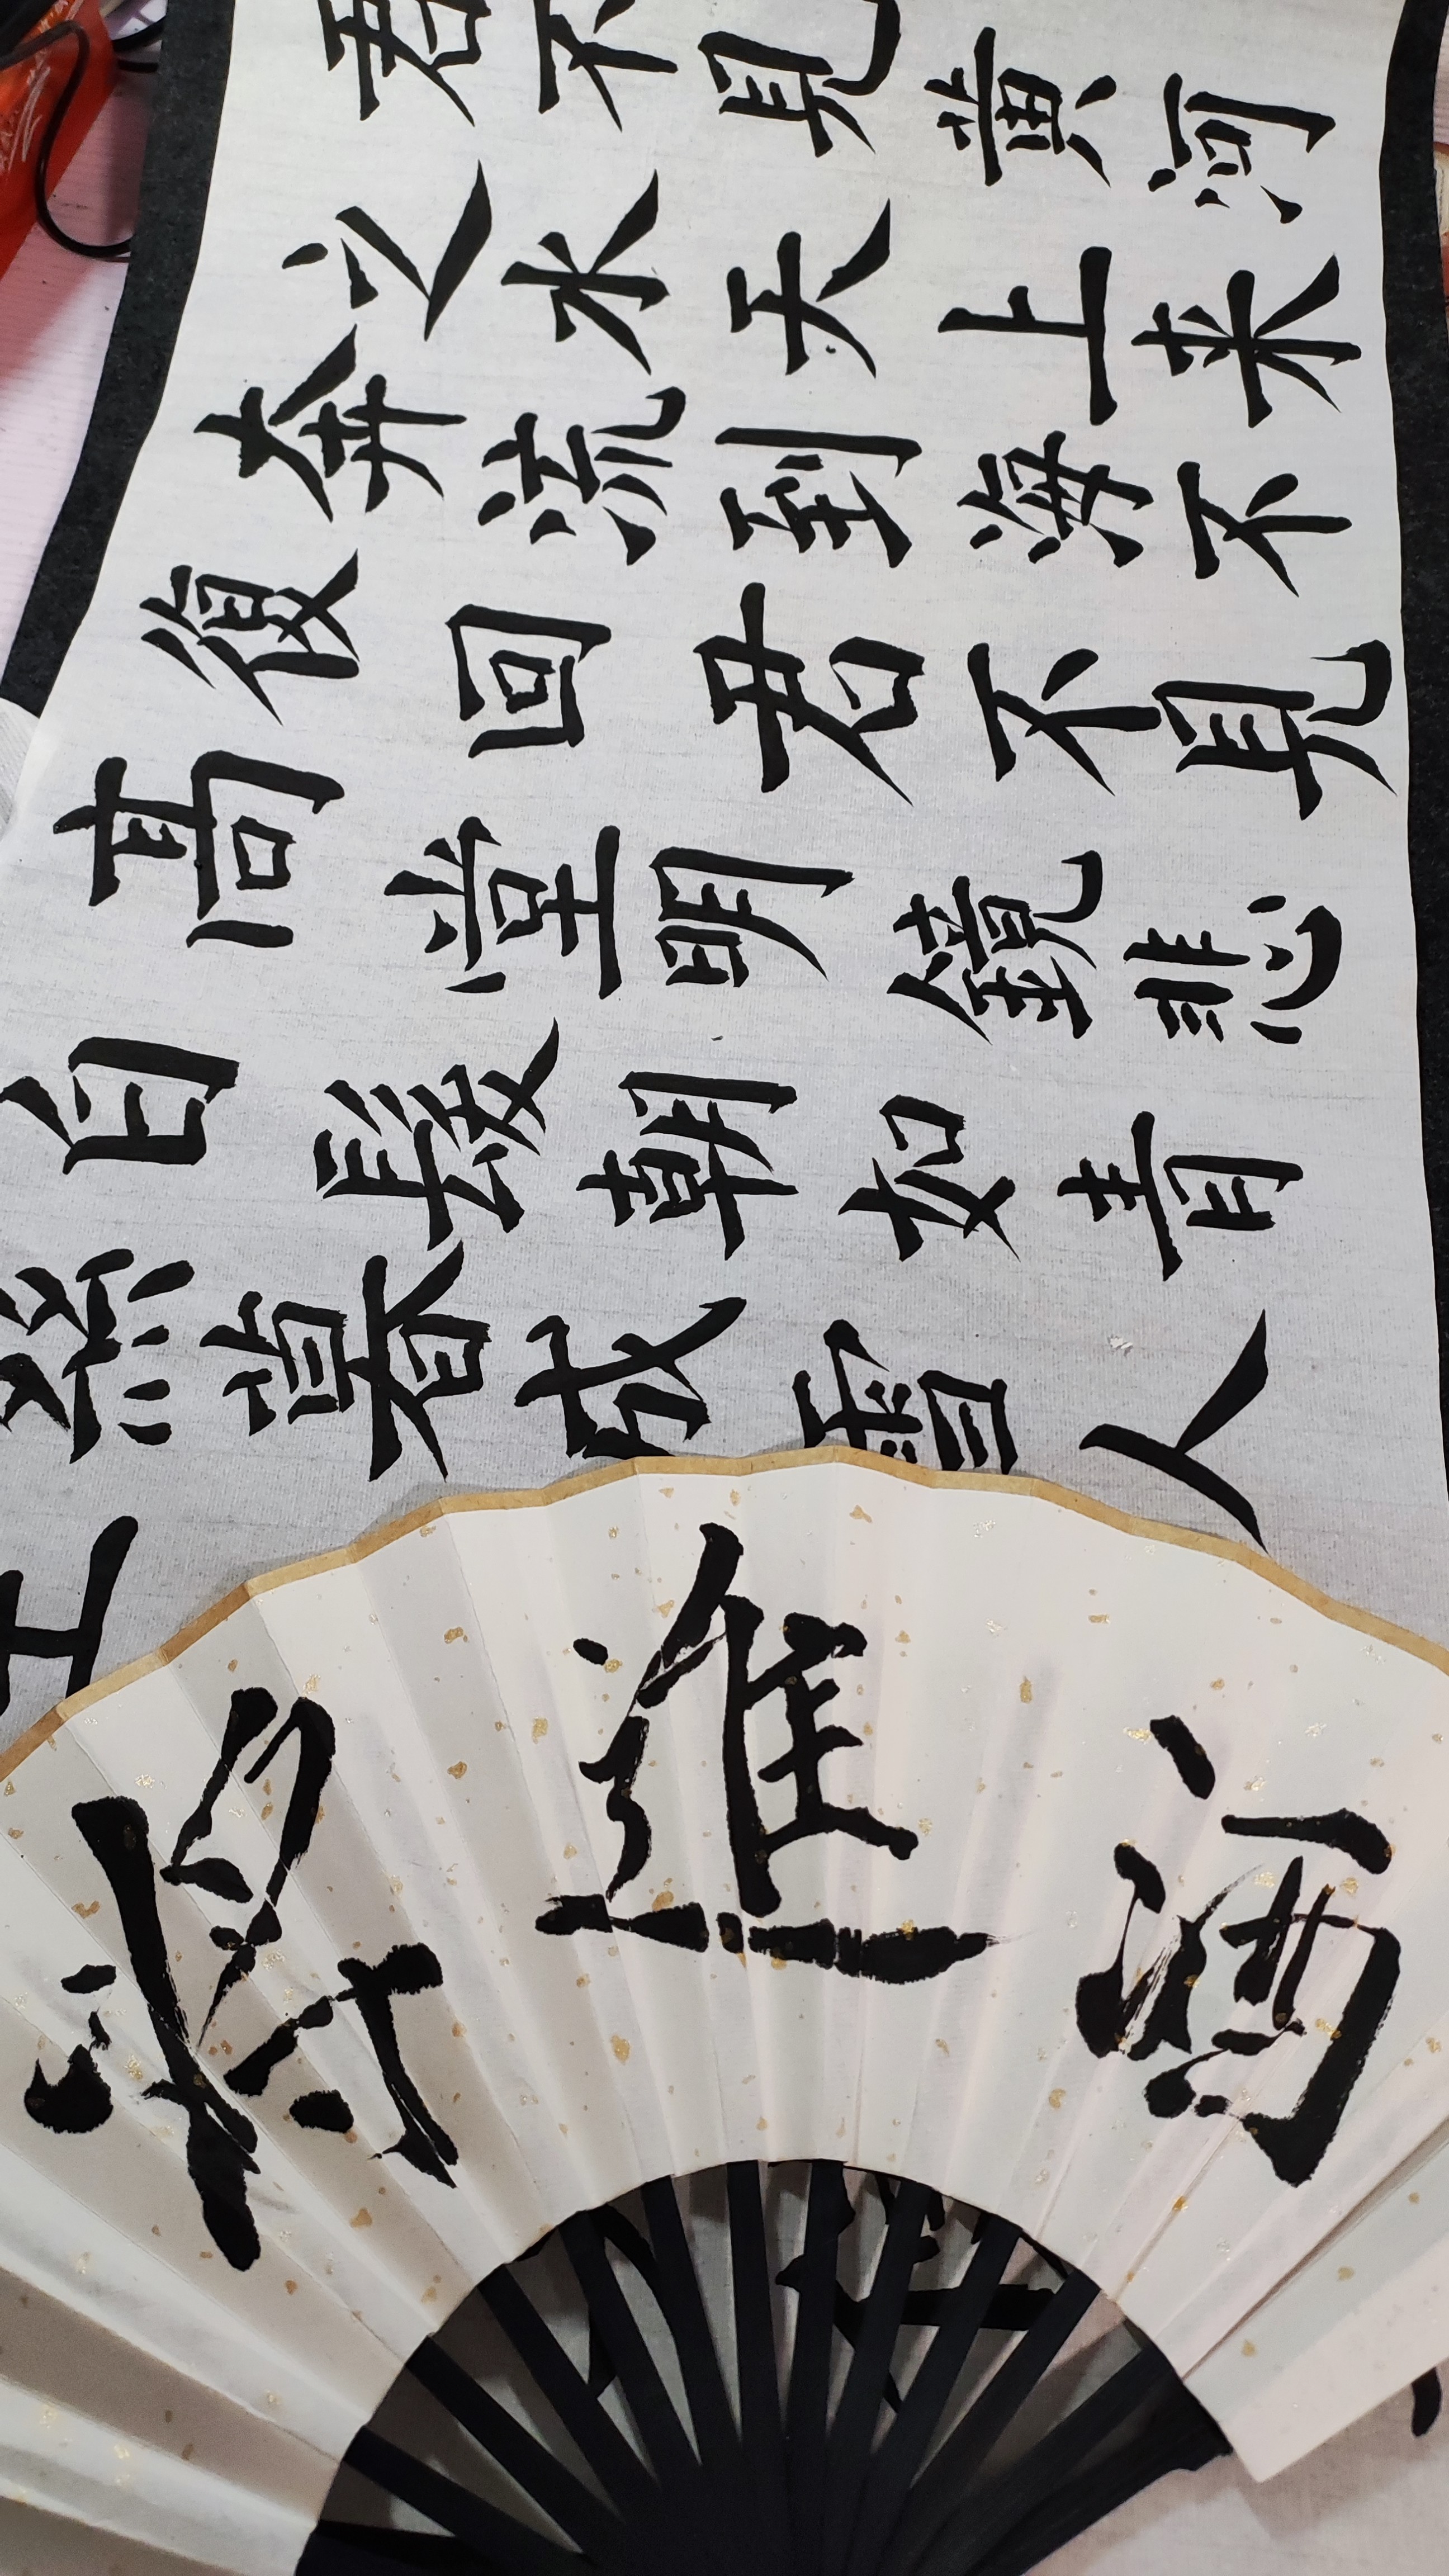 君不見黄河
之水天上来
奔流到海不
復回君不見
高堂明鏡悲
白髮朝如青
絲暮成雪人
将進酒